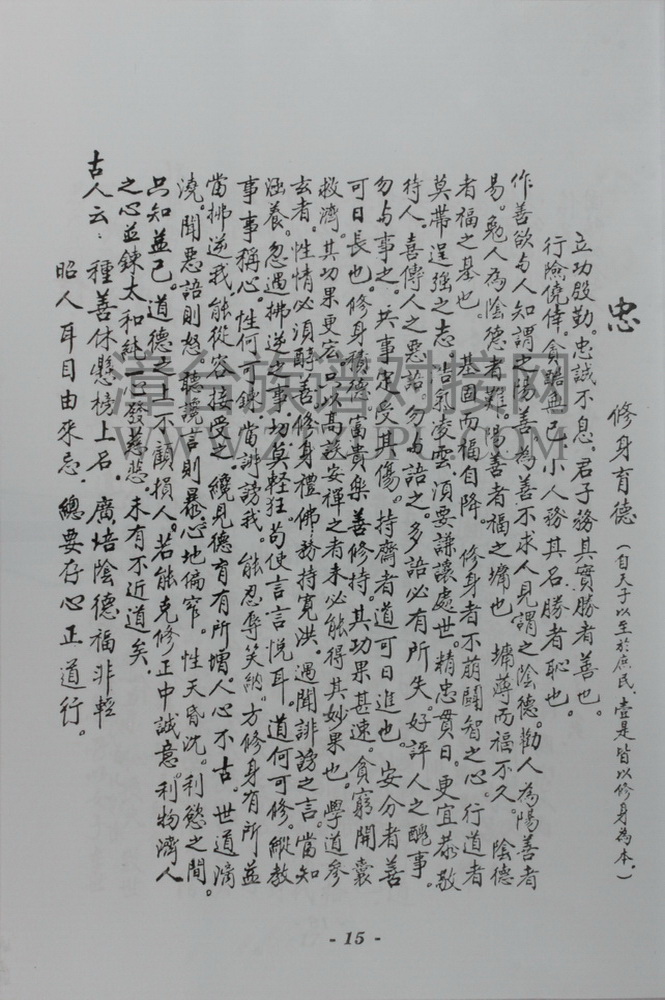 忠
修身育德（自天子以至於庶民，壹是皆以修身為本，）
立功殷勤。忠誠不息。君子務其實勝者善也。
行險僥倖。貪黷無已。小人務其名勝者恥也。
作善欲与人知謂之陽善為善不求人見謂之陰德。勸人為陽善者
易。勉人為陰德者難。陽善者福之墉也 墉薄而福不久。陰德
者福之基也 基固而福自降 修身者不萌鬪智之心。行道者
莫帶逞強之志。志氣凌雲，須要謙讓處世。精忠貫日。更宜恭敬
待人。喜傳人之惡語。勿与語之。多語必有所失。好評人之醜事。
勿与事之。共事定受其傷。持齋者道可日進也。安分者善
可日長也。修身積德。富貴樂善修持。其功果甚速。貧窮開囊
救濟。其功果更宏。只以高談安禪之者未必能得其妙果也。學道參
玄者。性情必須醇善。修身禮佛，務持寬洪。遇聞誹謗之言。當知
涵養。忽遇拂逆之事。切莫輕狂。苟使言言悅耳。道何可修。縱教
事事稱心。性何可鍊。當誹謗我。能忍辱笑納，方修身有所益
當拂逆我，能從容接受之，纔見德育有所增。人心不古。世道澆
澆。聞惡語則怒。聽讒言則暴。心地偏窄。性天昏沈。利慾之間。
只知益己。道德之上不顧損人。若能克修正中誠意。利物濟人
之心並鍊太和純一發慈悲 未有不近道矣。
古人云：種善休懸榜上名 廣培陰德福非輕
昭人耳目由來忌 總要存心正道行。
漳台族谱对接网
WWW.ZTZUPU.COM
- 15 -